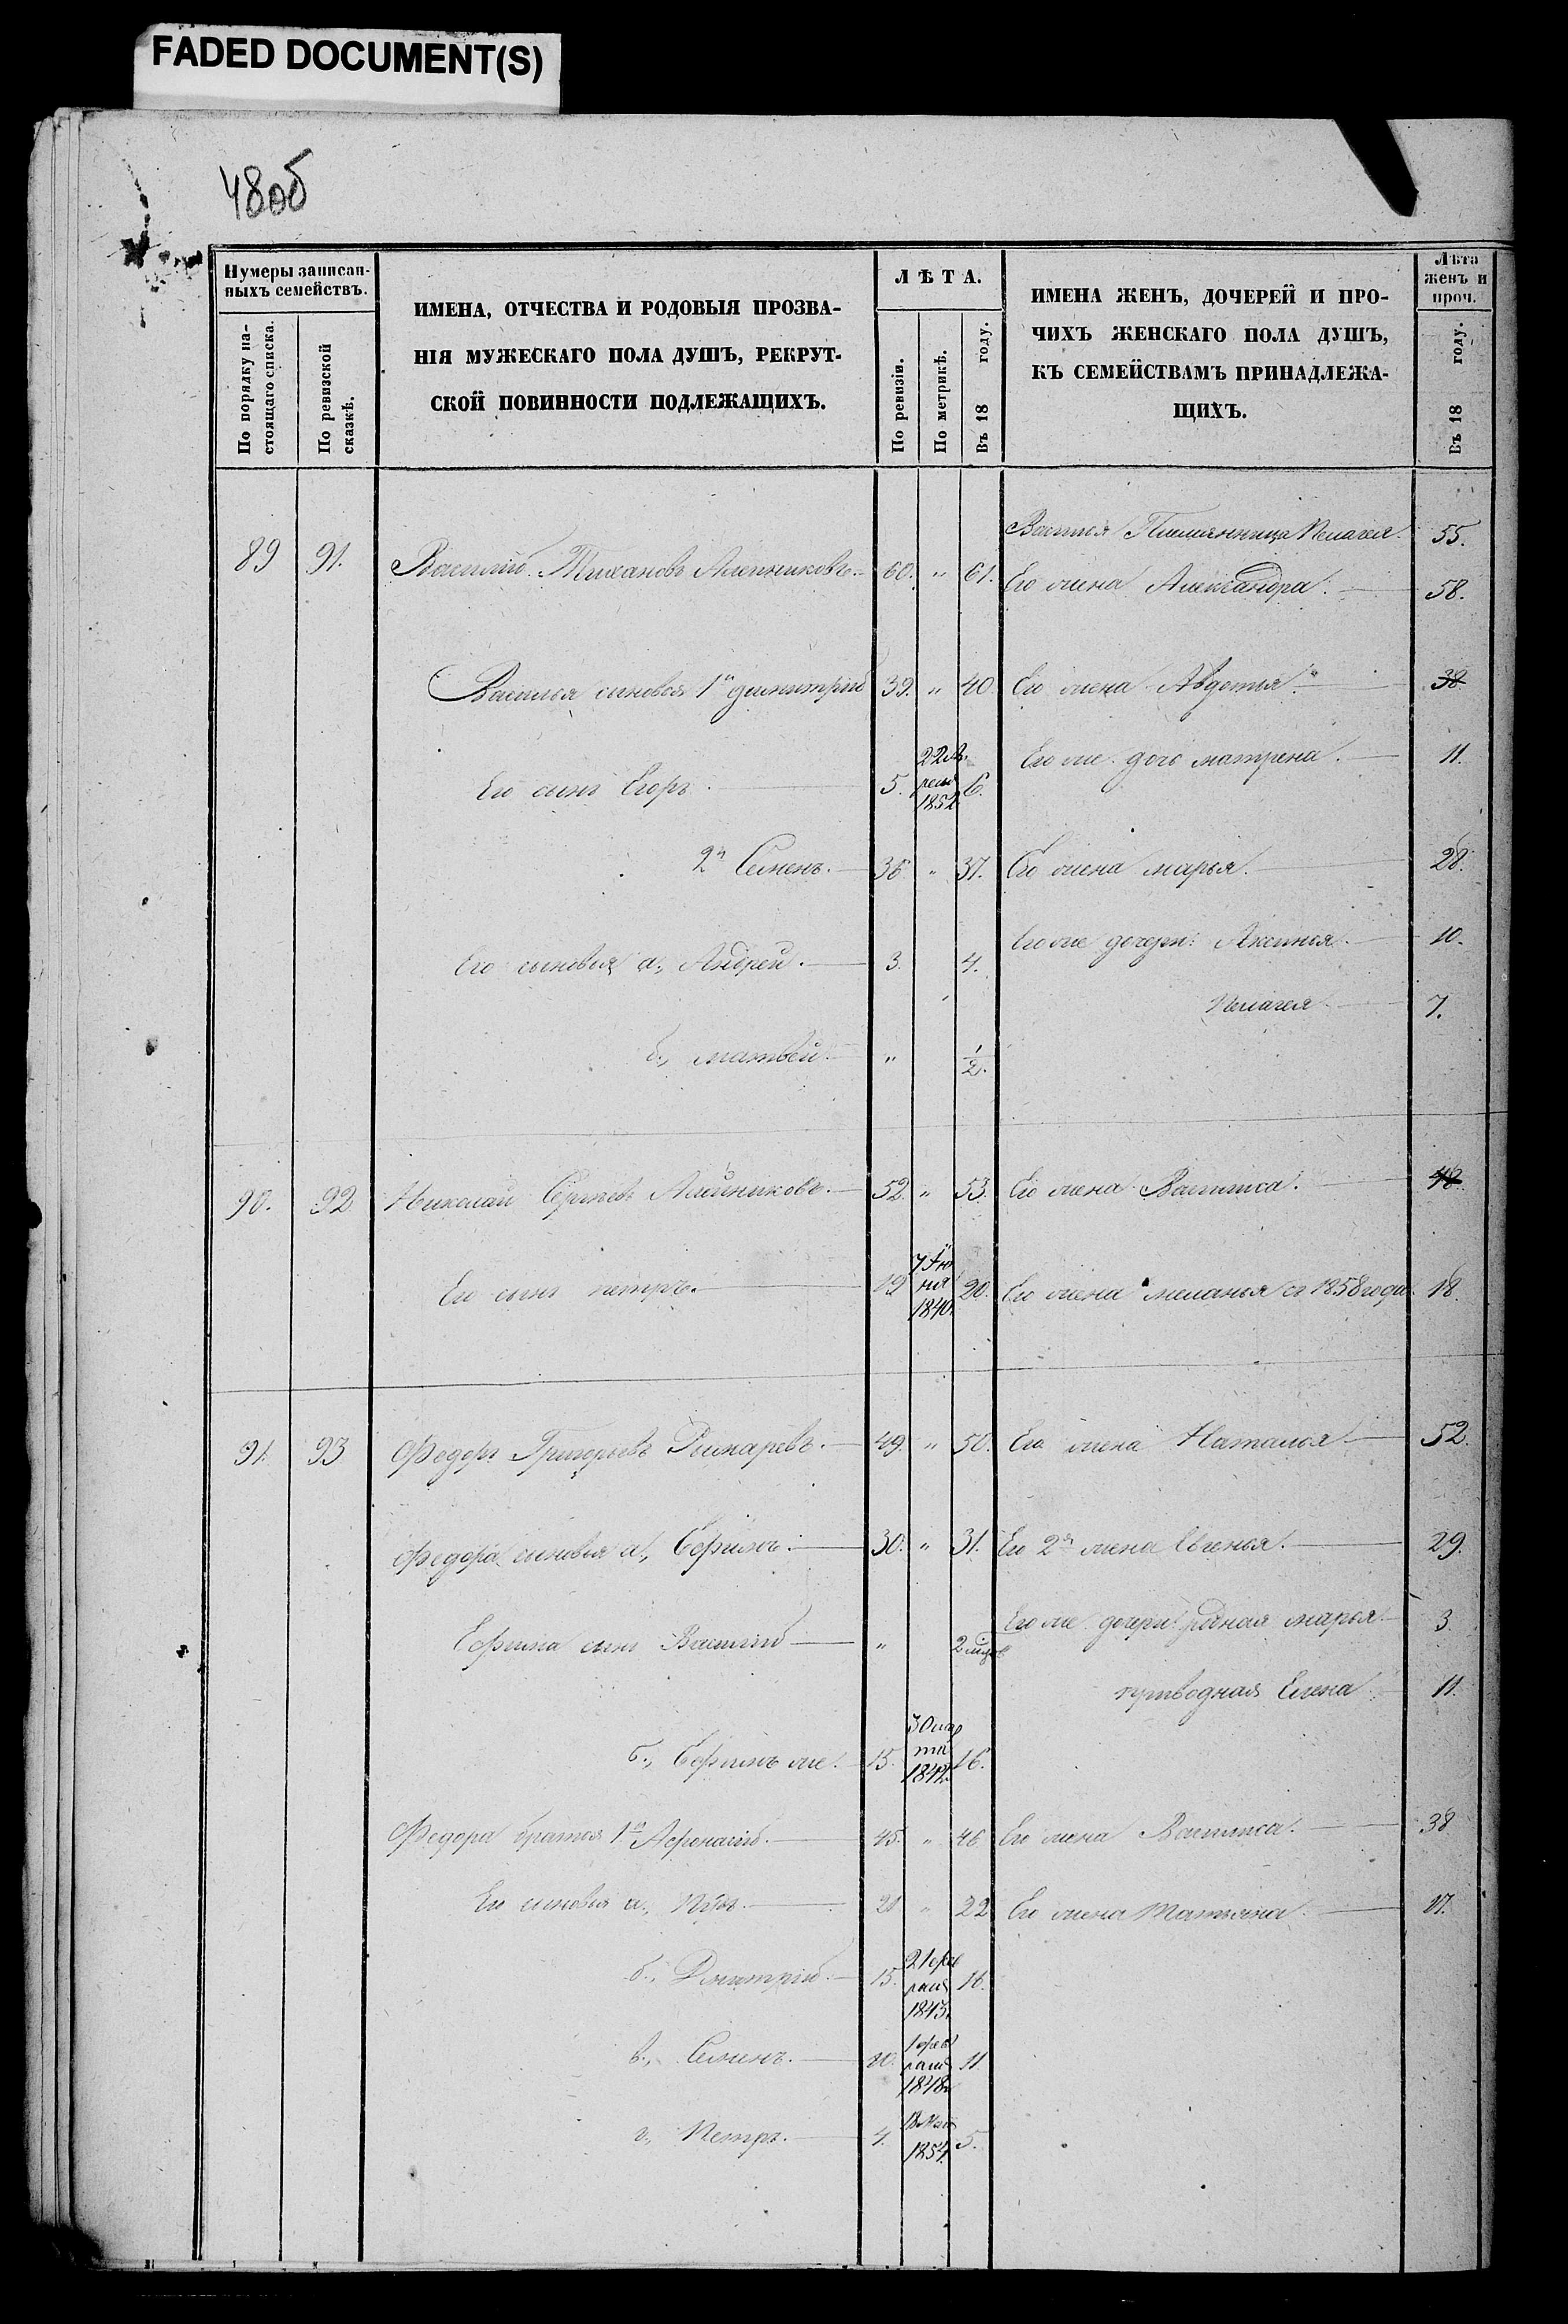 FADED DOCUMENT(S)
48об
Нумеры записан-
ныхъ семействъ.
По порядку на-
стоящаго списка.
По ревизской
сказкѣ.
ИМЕНА, ОТЧЕСТВА И РОДОВЫЯ ПРОЗВА-
НІЯ МУЖЕСКАГО ПОЛА ДУШЪ, РЕКРУТ-
СКОЙ ПОВИННОСТИ ПОДЛЕЖАЩИХЪ.
ЛѢТА.
По ревизіи.
По метрикѣ.
Въ 18 году.
ИМЕНА ЖЕНЪ, ДОЧЕРЕЙ И ПРО-
ЧИХЪ ЖЕНСКАГО ПОЛА ДУШЪ,
КЪ СЕМЕЙСТВАМЪ ПРИНАДЛЕЖА-
ЩИХЪ.
Лѣта
женъ и
проч.
Въ 18 году.
Племянница Пелагея. 55.
89 91. Василій Тихановъ 60. " 61. Его жена Александра. 58.
Василья сыновья 1й димитрій 39. " 40. Его жена Авдотья. 38
Его же дочь матрена. 11.
Его сынъ Егоръ. 5. 6.
2й Семенъ. 36 " 37. Его жена марья. 28.
Его же дочери: Аксинья. 10.
Его сыновья а., Андрей. 3. 4.
Пелагея. 7.
б., матвей. " 1/2.
90. 92 Николай Сергѣевъ 52 " 53. Его жена Василиса. 48.
Его сынъ петръ. 19 7 Iю
ня
1840. 20. Его жена меланья съ 1858 года 18.
91. 93 Федоръ Григорьевъ 49. " 50. Его жена Наталья. 52.
Федора сыновья а., Ефимъ. 30. " 31. Его 2я жена Евгенья. 29.
Его же дочери: родная марья. 3.
Ефима сынъ Василій " 2
приводная Елена. 11.
б., Ефимъ же. 15. 30 мар
та
16.
Федора братья 1й Афонасій. 45. " 46 Его жена Василиса. 38
Его сыновья а., 21 " 22 Его жена Татьяна. 17.
б., Дмитрій. 15. 2 фев
раля
1843. 16.
в., Семенъ. 10. 1 фев
раля
1848. 11.
г., Петръ. 4. 18 Мая
1854. 5.